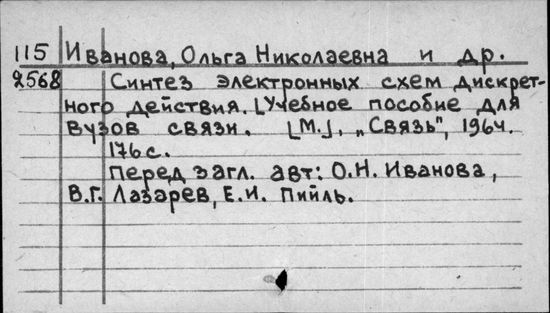 115 Иванова, Ольга Николаевна и др.
2568 Синтез электронных схем дискрет-
ного действия. [Учебное пособие для
вузов связи. [М.], „Связь", 1964.
176 с.
Перед загл. авт: О.Н. Иванова,
В.Г. Лазарев, Е.И. Пийль.